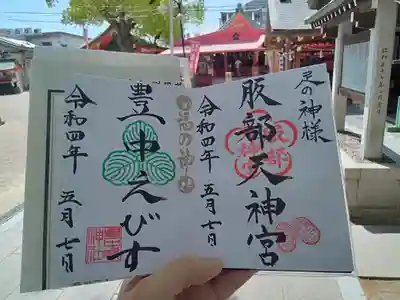 足の神様
服部天神宮
服部
天神宮
令和四年 五月七日
福の神
豊中えびす
令和四年 五月七日